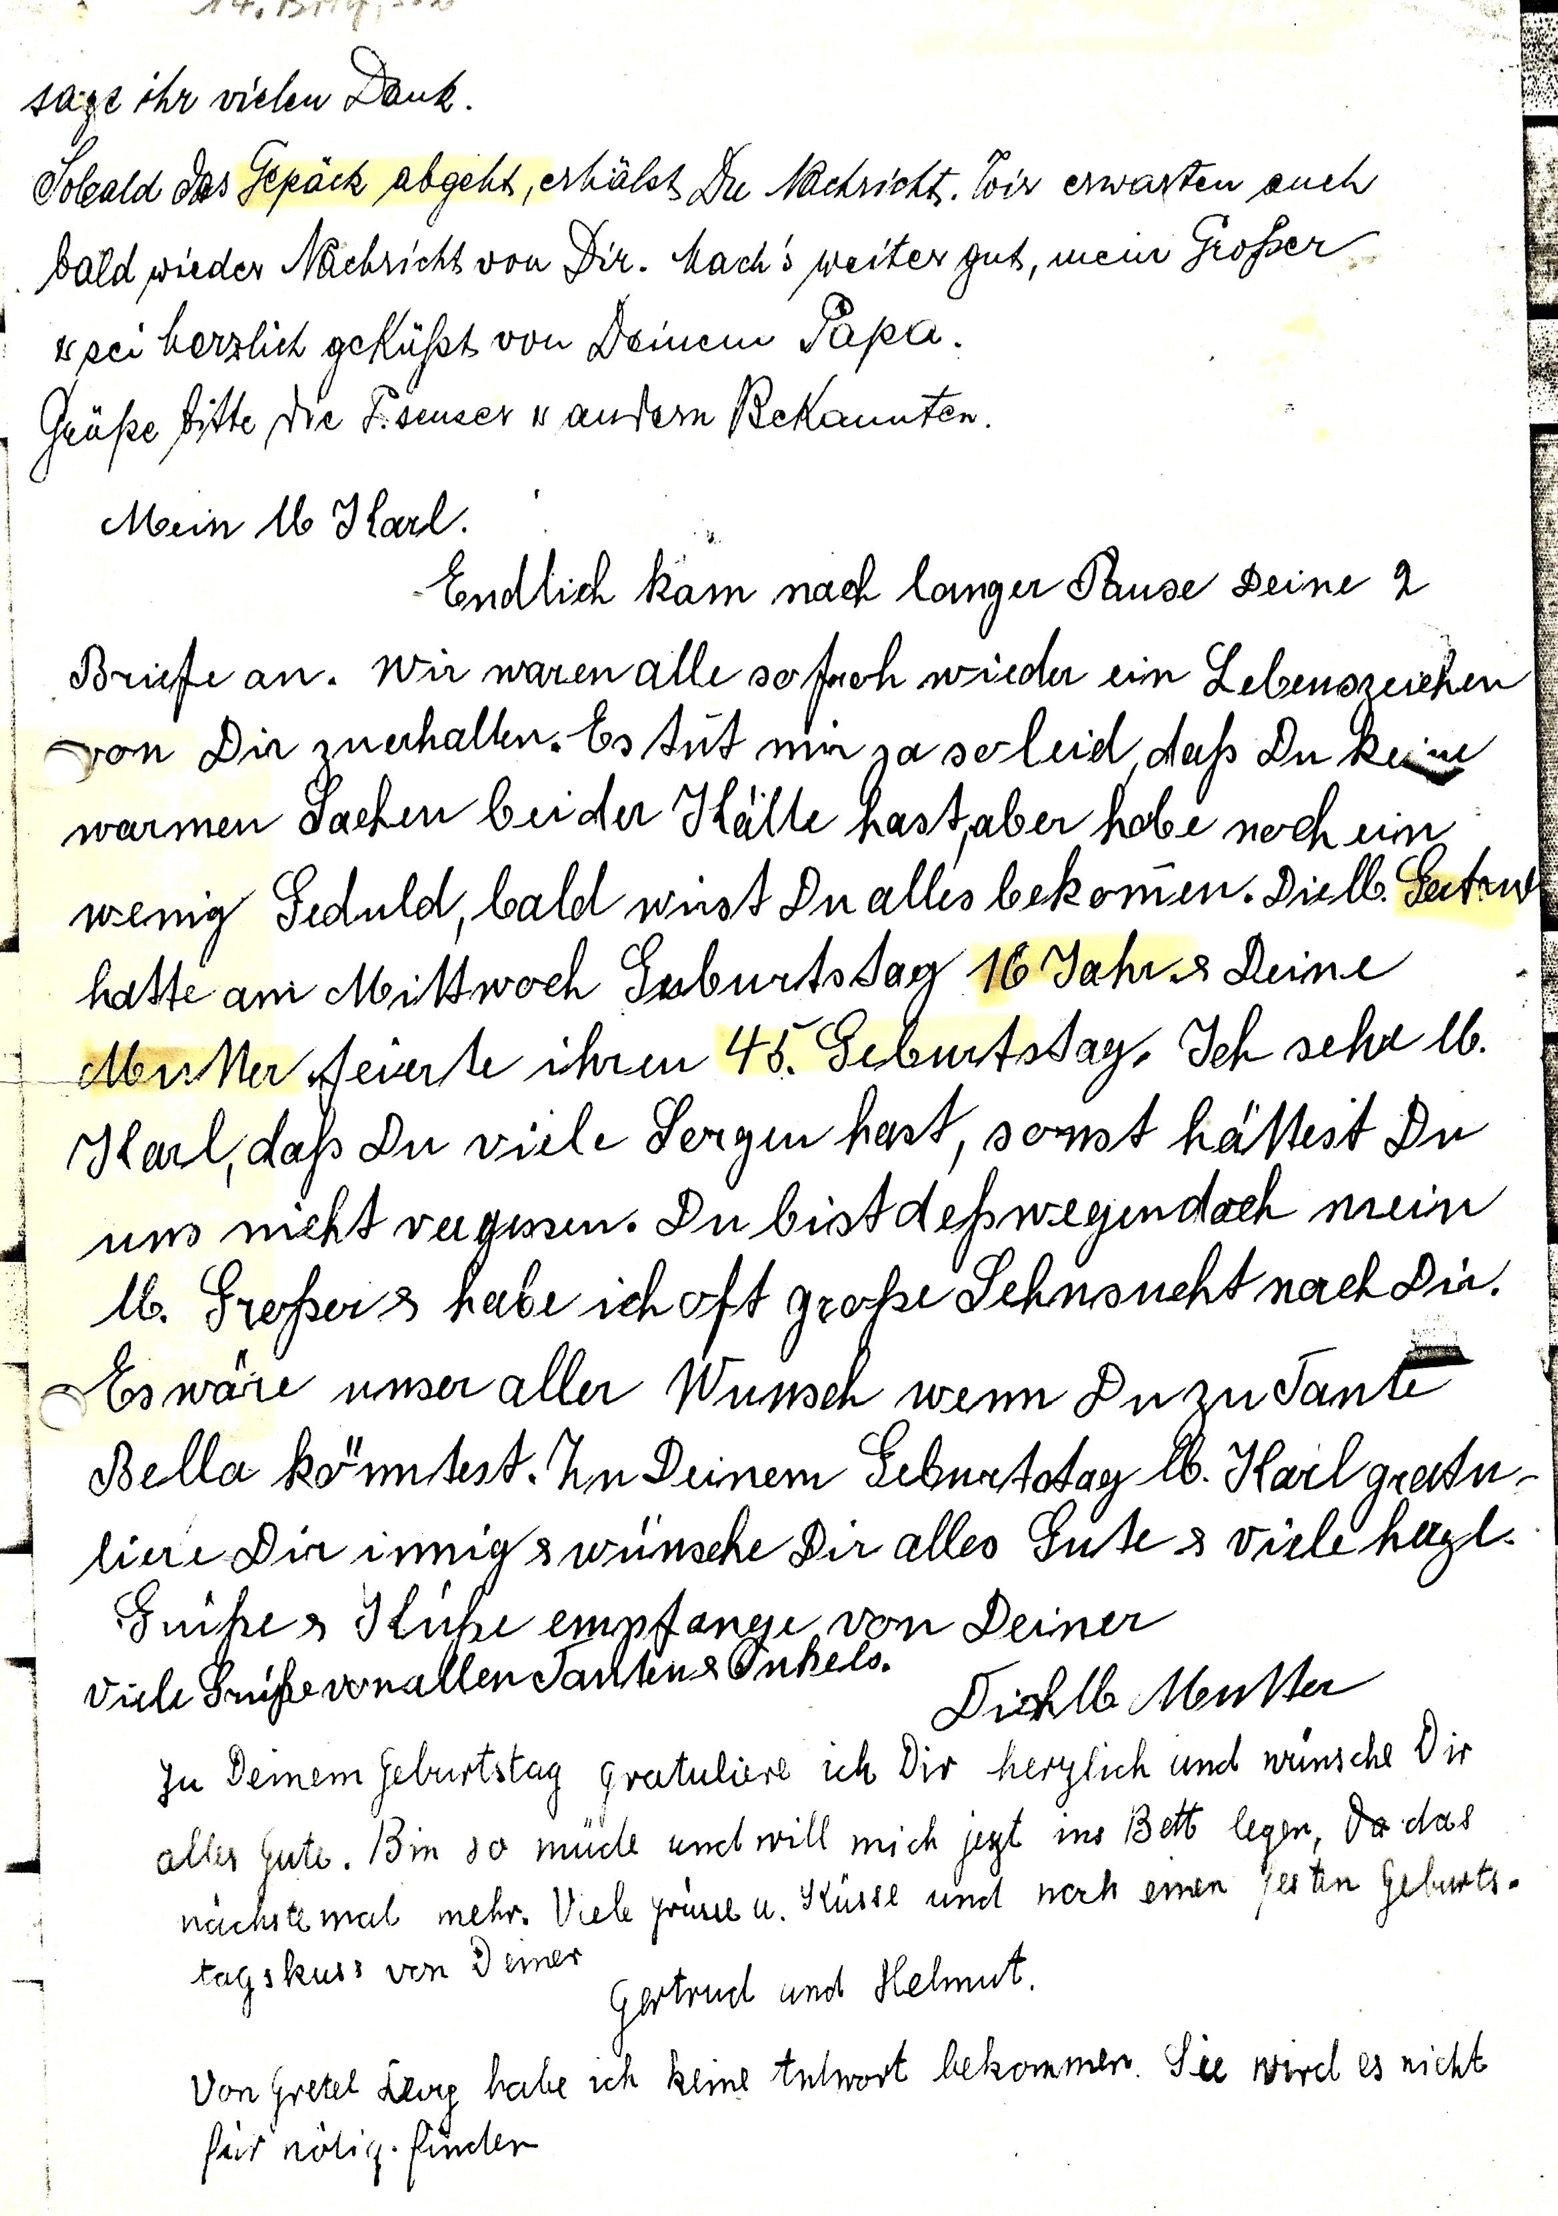 14. Brief, S. 2
sage ihr vielen Dank.
Sobald das Gepäck abgeht, erhälst Du Nachricht. Wir erwarten auch
bald wieder Nachricht von Dir. Mach's weiter gut, mein Großer
u sei herzlich geküßt von Deinem Papa.
Grüße bitte die u andern Bekannten.
Mein lb Karl.
Endlich kam nach langer Pause Deine 2
Briefe an. Wir waren alle so froh wieder ein Lebenszeichen
von Dir zuerhalten. Es tut mir ja so leid, daß Du keine
warmen Sachen bei der Kälte hast, aber habe noch ein
wenig Geduld, bald wirst Du alles bekom̄en. Die lb.
hatte am Mittwoch Geburtstag 16 Jahr & Deine
Mutter feierte ihren 45. Geburtstag. Ich sehe lb.
Karl, daß Du viele Sorgen hast, sonst hättest Du
uns nicht vergessen. Du bist deßwegen doch mein
lb. Großer & habe ich oft große Sehnsucht nach Dir.
Es wäre unser aller Wunsch wenn Du zu Tante
Bella könntest. Zu Deinem Geburtstag lb. Karl gratu-
liere Dir innig & wünsche Dir alles Gute & viele herzl.
Grüße & Küße empfange von Deiner
Viele Grüße von allen Tanten & Onkels.
Dich lb Mutter
Zu Deinem Geburtstag gratuliere ich Dir herzlich und wünsche Dir
alles Gute. Bin so müde und will mich jetzt ins Bett legen, das
nächstemal mehr. Viele Grüsse u. Küsse und noch einen festen Geburts-
tagskuss von Deiner
Gertrud und Helmut.
Von Gretel habe ich keine Antwort bekommen. Sie wird es nicht
für nötig finden